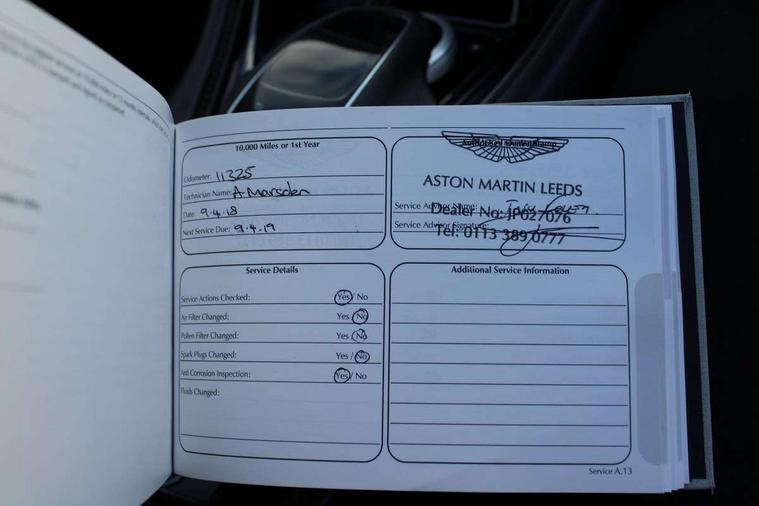 10,000 Miles or 1st Year
Odometer: 11325
Technician Name: A Marsden
Date: 9.4.18
Next Service Due: 9.4.19
Authorised Dealer Stamp
ASTON MARTIN LEEDS
Service Advisor Name:
Dealer No: JP027076
Service Advisor Signature:
Tel: 0113 389 0777
Service Details
Service Actions Checked: Yes / No
Air Filter Changed: Yes / No
Pollen Filter Changed: Yes / No
Spark Plugs Changed: Yes / No
Anti Corrosion Inspection: Yes / No
Fluids Changed:
Additional Service Information
Service A.13